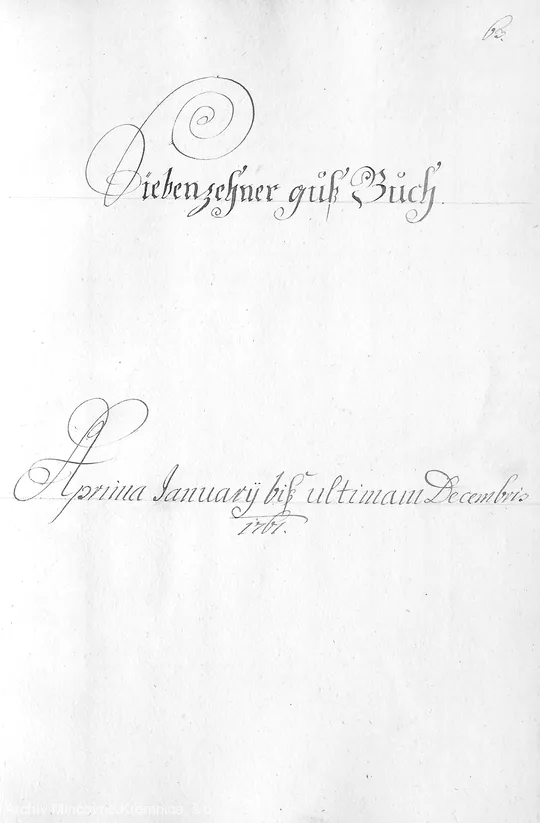 63.
Siebenzehner guß Buch.
A prima Januarÿ biß ultimam Decembris
1761.
Archív Mincovne Kremnica, š.p.